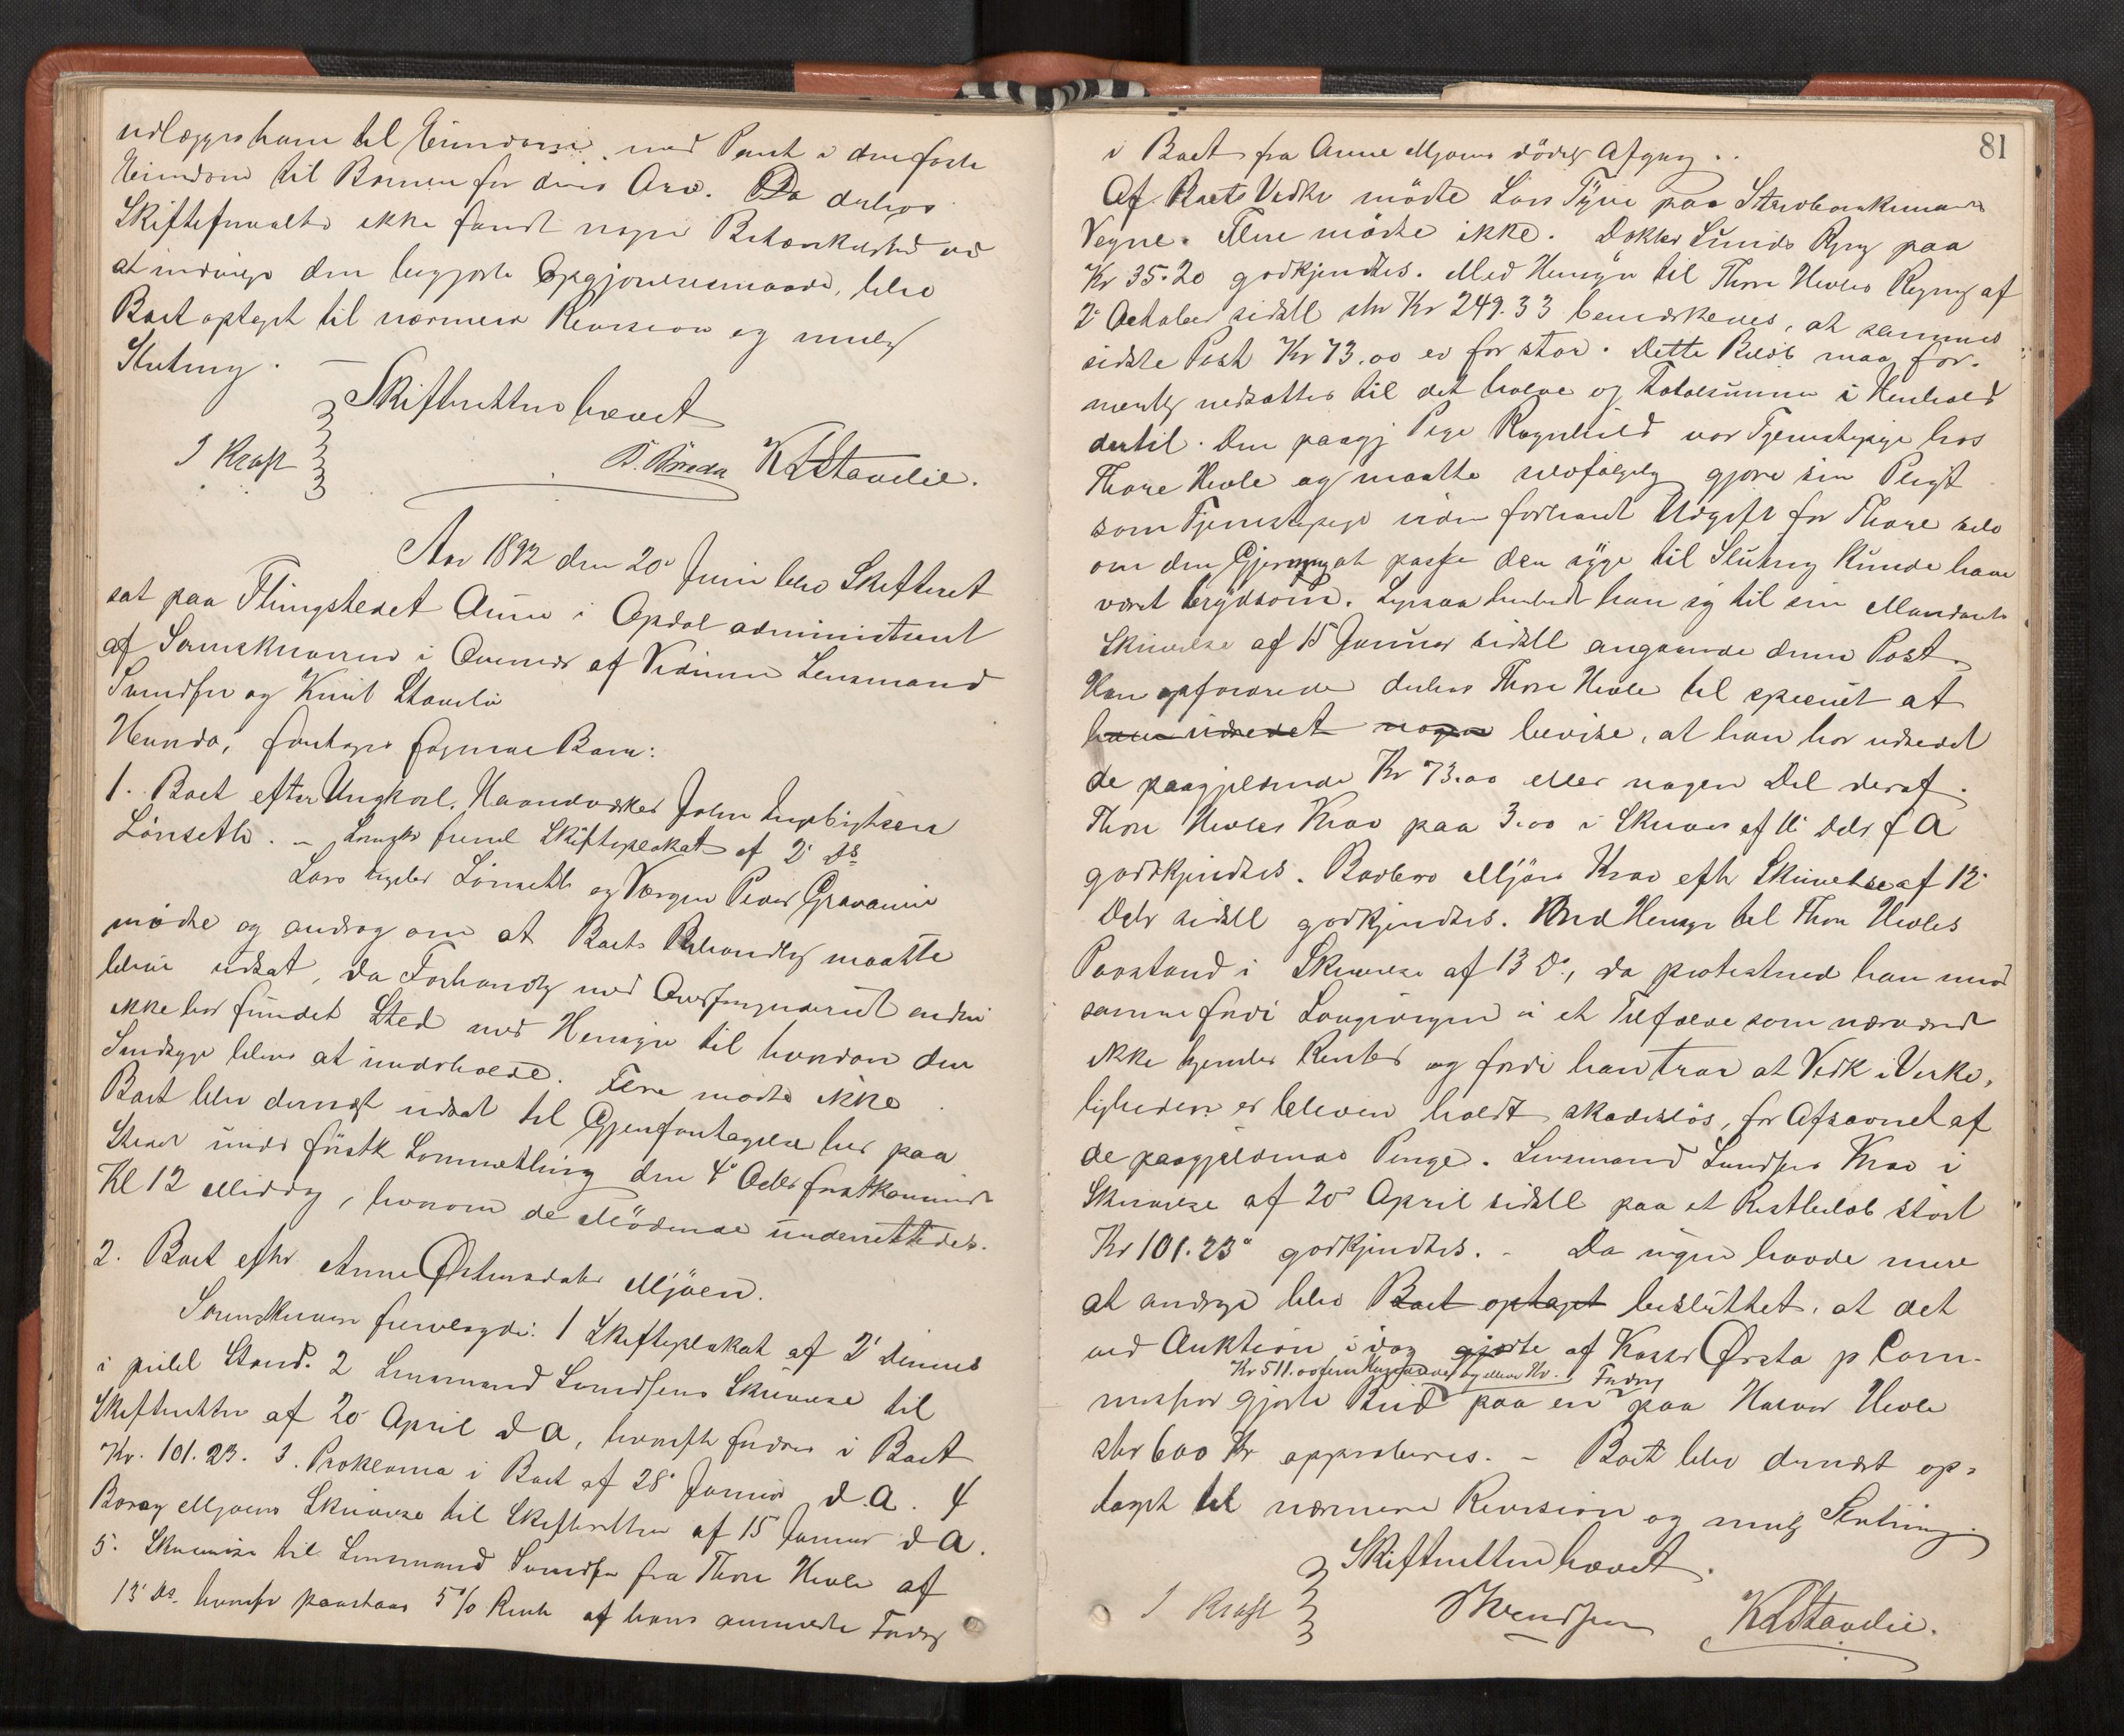 udlægges ham til Eiendom med Pant i den faste
Eiendom til Børnene for deres Arv. Da derhos
Skifteforvalter ikke fandt nogen Betænkelighed ved
at indvilge den begjærte Opgjørelsesmaade, blev
Boet optaget til nærmere Revision og mulig
Slutning.
Skifteretten hævet
J Kraft K Stavelie.
Aar 1892 den 20de Juni blev Skifteret
sat paa Thingstedet Aune i Opdal administreret
af Sorenskriveren i Overvær af Vidnerne Lensmand
Svendsen og Knut Stavelie
Hvorda, foretoges følgende Boer:
1. Boet efter Ungkarl, Haandværker John Ingebrigtsen
Lønseth. – fremlagt Skifteplakat af 2 ds
Lars Lønseth og Værgen Peder Gravaune
mødte og androg om at Boets Behandling maatte
blive udsat, da Forhandling med endnu
ikke har fundet Sted med Hensyn til hvordan den
Sindsyge blive at underholde. Flere mødte ikke.
Boet blev dernæst udsat til Gjenforetagelse her paa
Stedet under første Sommerthing den 4de October førstkommende
Kl 12 Middag, hvorom de Mødende underrettedes.
2. Boet efter Anne Østensdatter Mjøen.
Sorenskriveren fremlagde: 1 Skifteplakat af 2 dennes
i Stand. 2 Lensmand Svendsens Skrivelse til
Skifteretten af 20 April d A, hvorefter fordres i Boet
Kr. 101.23. 3. Proklama i Boet af 28 Januar d. A. 4
Mjøens Skrivelse til Skifteretten af 15 Januar d A.
5. Skrivelse til Lensmand Svendsen fra Thore Hevle af
13 ds. hvorefter paastaaes 5 % Rente af hans anmeldte Fordring
81
i Boet fra Anne Mjøens dødelige Afgang.
Af Boets Vedkommende mødte Lars Tyve paa
Vegne. Flere mødte ikke. Doktor Lunds Regning paa
Kr 35.20 godkjendtes. Med Hensyn til Thore Hevles Regning af
2 October sidstl stor Kr 249.33 bemærkedes, at sammes
sidste Post Kr 73.00 er for stor. Dette Beløb maa for-
mentlig nedsættes til det halve og Totalsummen i Henhold
dertil. Den paagj Pige Ragnhild var Tjenestepige hos
Thore Hevle og maatte selvfølgelig gjøre sin Pligt
som Tjenestepige uden forhøiet Udgift for Thore selv
om den Gjerning at passe den syge til Slutning kunde have
været brydsom. Ligesaa henholdt han sig til sin Mandants
Skrivelse af 15 Januar sidstl angaaende denne Post.
Han opfordrede derhos Thore Hevle til specielt at
han udredet nogen bevise, at han har udredet
de paagjeldende Kr 73.00 eller nogen Del deraf.
Thore Hevles Krav paa 3.00 i Skrivelse af 11 Debr f A
godkjendtes. Barbro Mjøens Krav efter Skrivelse af 12
Debr sidstl godkjendtes. Med Hensyn til Thore Hevles
Paastand i Skrivelse af 13 Ds., da protesterede han mod
samme fordi Lovgivningen i et Tilfælde som nærværende
ikke hjemler Renter og fordi han tror at Vedk i Virke-
ligheden er bleven holdt skadesløs, for Afsavnet af
de paagjeldende Penge. Lensmand Svendsens Krav i
Skrivelse af 20 April sidstl paa et Restbeløb stort
Kr 101.23 godkjendtes. – Da ingen havde mere
at andrage blev Boet optaget besluttet, at det
ved Auktion i dag gjorte af Kasser Ørsta p Com-
Kr 511.00 Fordring
mission gjorte Bud paa en paa Halvor Hevle
stor 600 Kr approberes. – Boet blev dernæst op-
taget til nærmere Revision og mulig Slutning.
Skifteretten hævet.
J Kraft Svendsen K Stavelie.